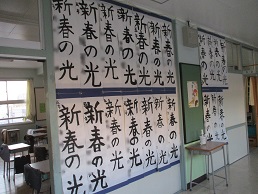 新春の光
新春の光
新春の光
新春の光
新春の光
新春の光
新春の光
新春の光
新春の光
新春の光
新春の光
新春の光
新春の光
新春の光